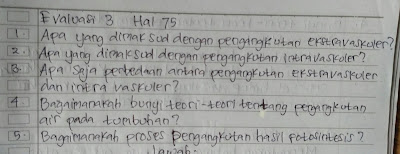 Evaluasi 3 Hal 75
1. Apa yang dimaksud dengan pengangkutan ekstravaskuler?
2. Apa yang dimaksud dengan pengangkutan intravaskuler?
3. Apa Saja perbedaan antara pengangkutan ekstravaskuler
dan intra vaskuler?
4. Bagaimanakah bungi teori-teori tentang pengangkutan
air pada tumbuhan?
5. Bagaimanakah proses pengangkutan hasil fotosintesis?
Jawab: